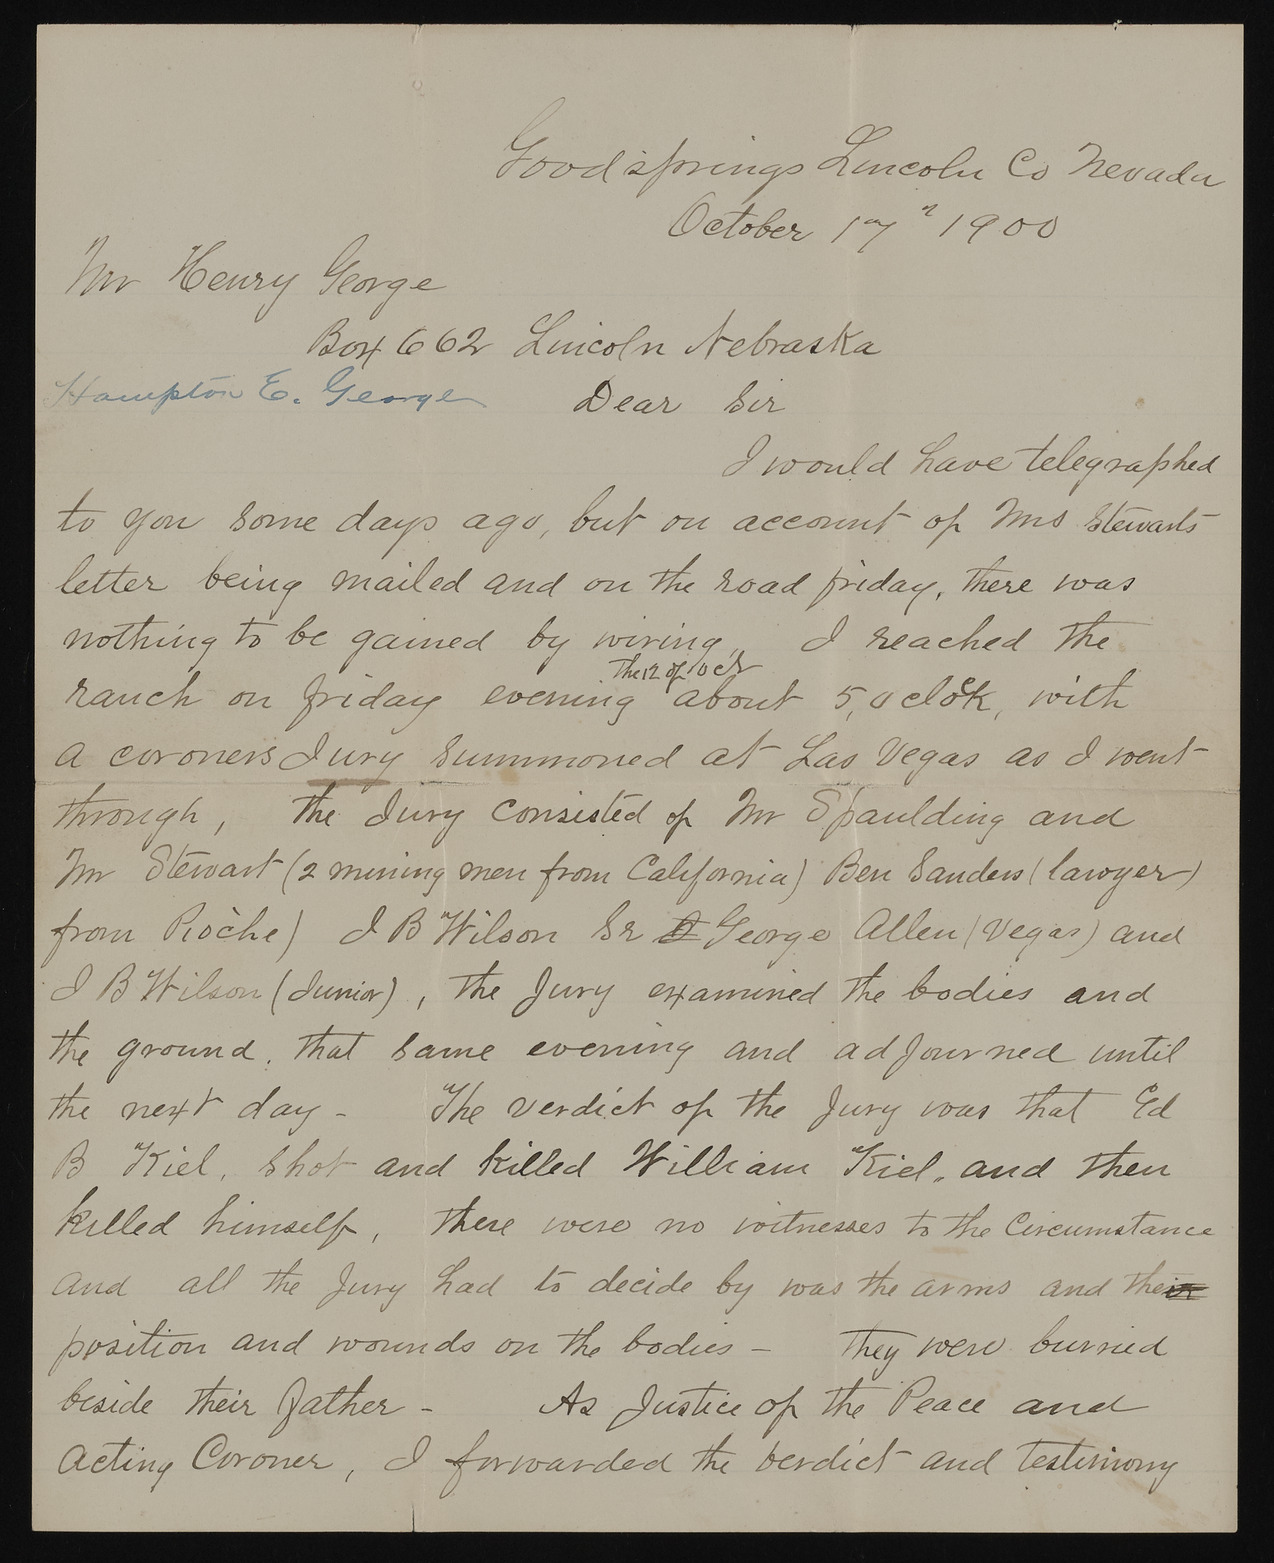 Goodsprings Lincoln Co Nevada
October 17th 1900
Mr Henry George
Box 662 Lincoln Nebraska
Hampton E. George
Dear Sir
I would have telegraphed
to you some days ago, but on account of Mrs Stewarts
letter being mailed and on the road friday, there was
nothing to be gained by wiring,, I reached the
the 12 of oct
ranch on friday evening about 5,oclock, with
a coroners Jury summoned at Las Vegas as I went
through, the Jury consisted of Mr Spaulding and
Mr Stewart (2 mining men from California) Ben Sanders (lawyer)
from Pioche) J B Wilson Sr George Allen (Vegas) and
J B Wilson (Junior), the Jury examined the bodies and
the ground, that same evening and adjourned until
the next day - The verdict of the Jury was that Ed
B Kiel, shot and killed William Kiel, and then
killed himself, there were no witnesses to the Circumstance
and all the Jury had to decide by was the arms and their
position and wounds on the bodies - they were burried
beside their father - As Justice of the Peace and
Acting Coroner, I forwarded the verdict and testimony